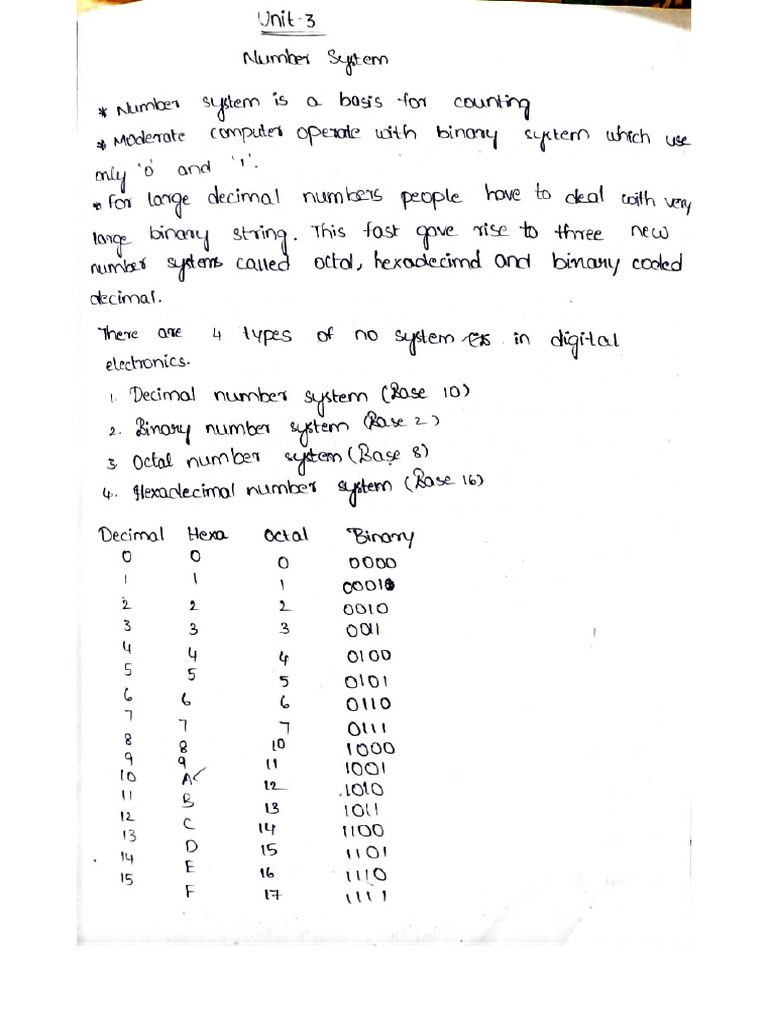 Unit-3
Number System
* Number system is a basis for counting
* Moderate computer operate with binary system which use
only '0' and '1'.
* For large decimal numbers people have to deal with very
large binary string. This fast gave rise to three new
number systems called octal, hexadecimd and binary coded
decimal.
There are 4 types of no system in digital
electronics.
1. Decimal number system (Base 10)
2. Binary number system (Base 2)
3. Octal number system (Base 8)
4. Hexadecimal number system (Base 16)
Decimal Hexa Octal Binary
0 0 0 0000
1 1 1 0001
2 2 2 0010
3 3 3 0011
4 4 4 0100
5 5 5 0101
6 6 6 0110
7 7 7 0111
8 8 10 1000
9 9 11 1001
10 A 12 1010
11 B 13 1011
12 C 14 1100
13 D 15 1101
14 E 16 1110
15 F 17 1111